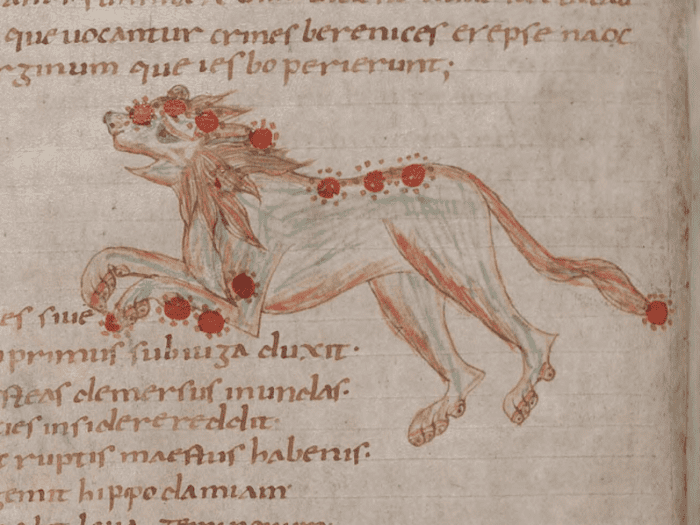 que uocantur crines berenices erepse naoc
rginum que iesbo perierunt;
es siue
primus subiuga duxit.
steas demersus inundas.
ies insidere reddit
t ruptis maestus habenis.
gemit hippodamiam